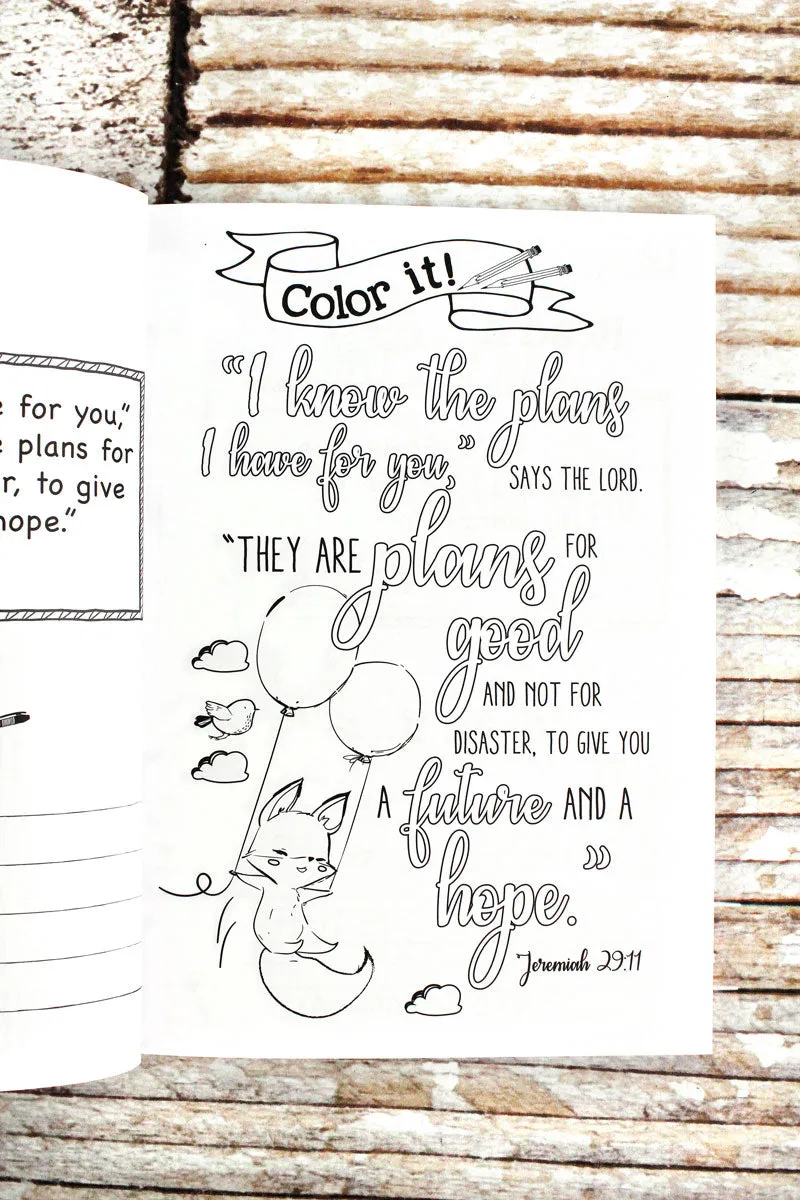 for you,”
plans for
to give
Color it!
“I know the plans
I have for you,”
SAYS THE LORD.
“THEY ARE plans FOR
good
AND NOT FOR
DISASTER, TO GIVE YOU
A future AND A
hope.”
Jeremiah 29:11